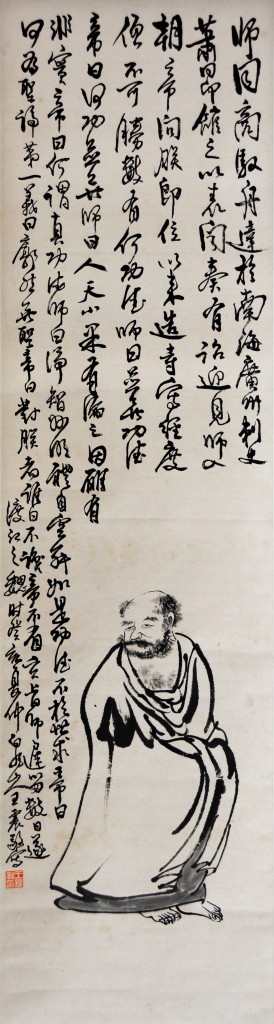 師同商駁舟達於南海廣州刺史
蕭昂館之以表聞奏有詔迎見師入
朝帝問朕即位以來造寺寫經度
僧不可勝數有何功德師曰並無功德
帝曰何功並無師曰人天小果有漏之因雖有
非實帝曰何謂真功德師曰淨智妙明體自空寂如是功德不於世求帝曰
何為聖諦第一義曰廓然無聖帝曰對朕者誰曰不識帝不省玄旨師留數日遂
渡江之魏 時癸亥夏仲白龍山人王震敬寫